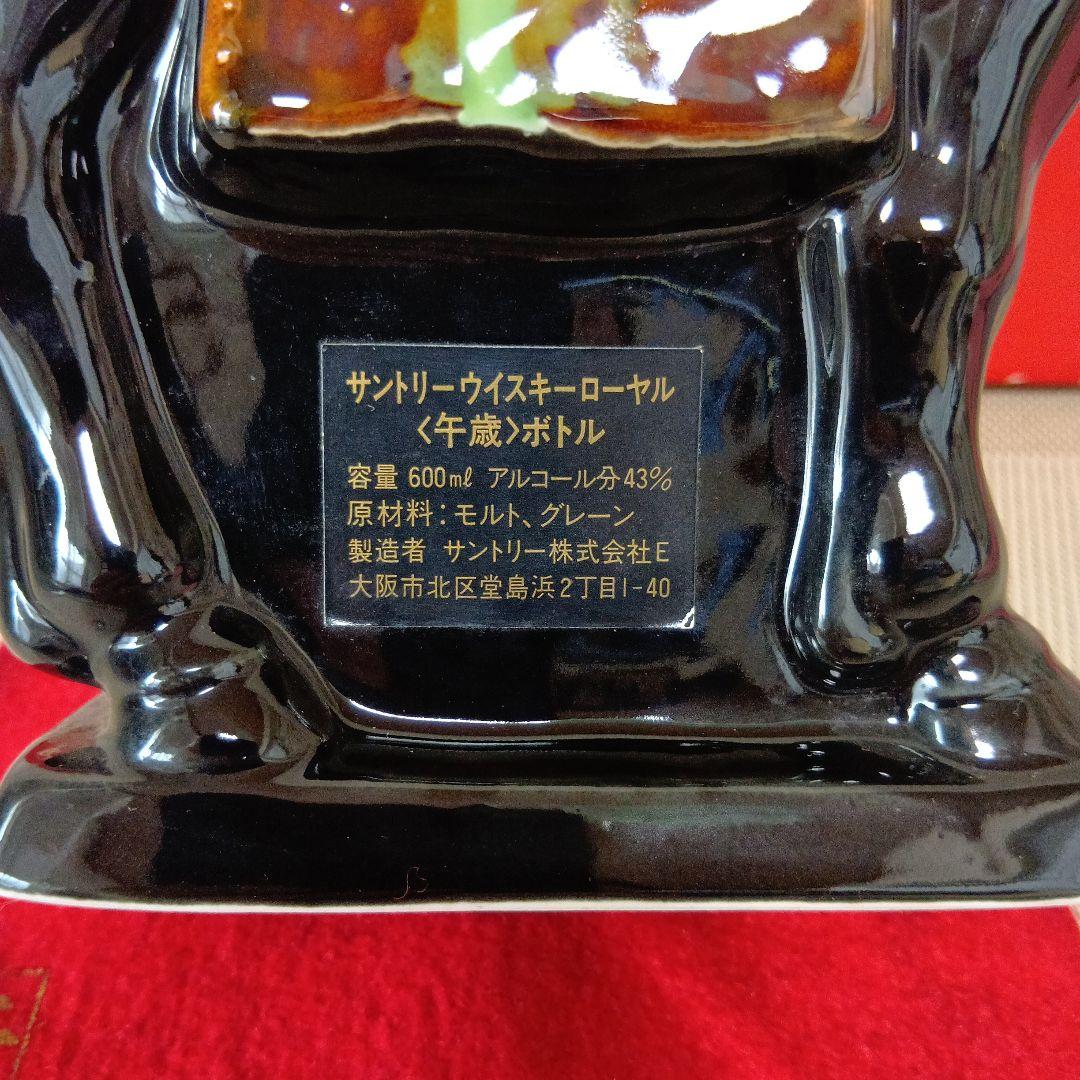 サントリーウイスキーローヤル
〈午歳〉ボトル
容量 600㎖ アルコール分43%
原材料:モルト、グレーン
製造者 サントリー株式会社E
大阪市北区堂島浜2丁目1-40